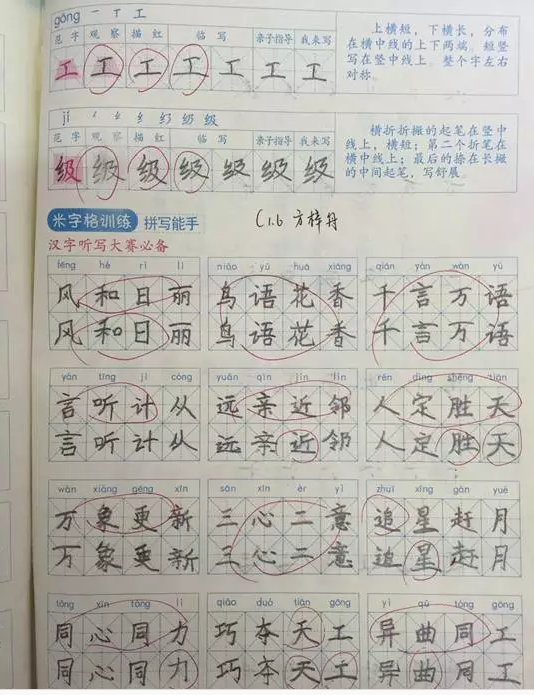 gōng 一 丅 工
范字 观察 描红 临写 亲子指导 我来写
工 工 工 工 工 工 工
上横短，下横长，分布
在横中线的上下两端。短竖
写在竖中线上。整个字左右
对称。
jí
范字 观察 描红 临写 亲子指导 我来写
级 级 级 级 级 级 级
横折折撇的起笔在竖中
线上，横短；第二个折笔在
横中线上；最后的捺在长撇
的中间起笔，写舒展。
米字格训练 拼写能手 C1.6 方梓舟
汉字听写大赛必备
fēng hé rì lì niǎo yǔ huā xiāng qiān yán wàn yǔ
风和日丽 鸟语花香 千言万语
风和日丽 鸟语花香 千言万语
yán tīng jì cóng yuǎn qīn jìn lín rén dìng shèng tiān
言听计从 远亲近邻 人定胜天
言听计从 远亲近邻 人定胜天
wàn xiàng gēng xīn sān xīn èr yì zhuī xīng gǎn yuè
万象更新 三心二意 追星赶月
万象更新 三心二意 追星赶月
tóng xīn tóng lì qiǎo duó tiān gōng yì qǔ tóng gōng
同心同力 巧夺天工 异曲同工
同心同力 巧夺天工 异曲同工